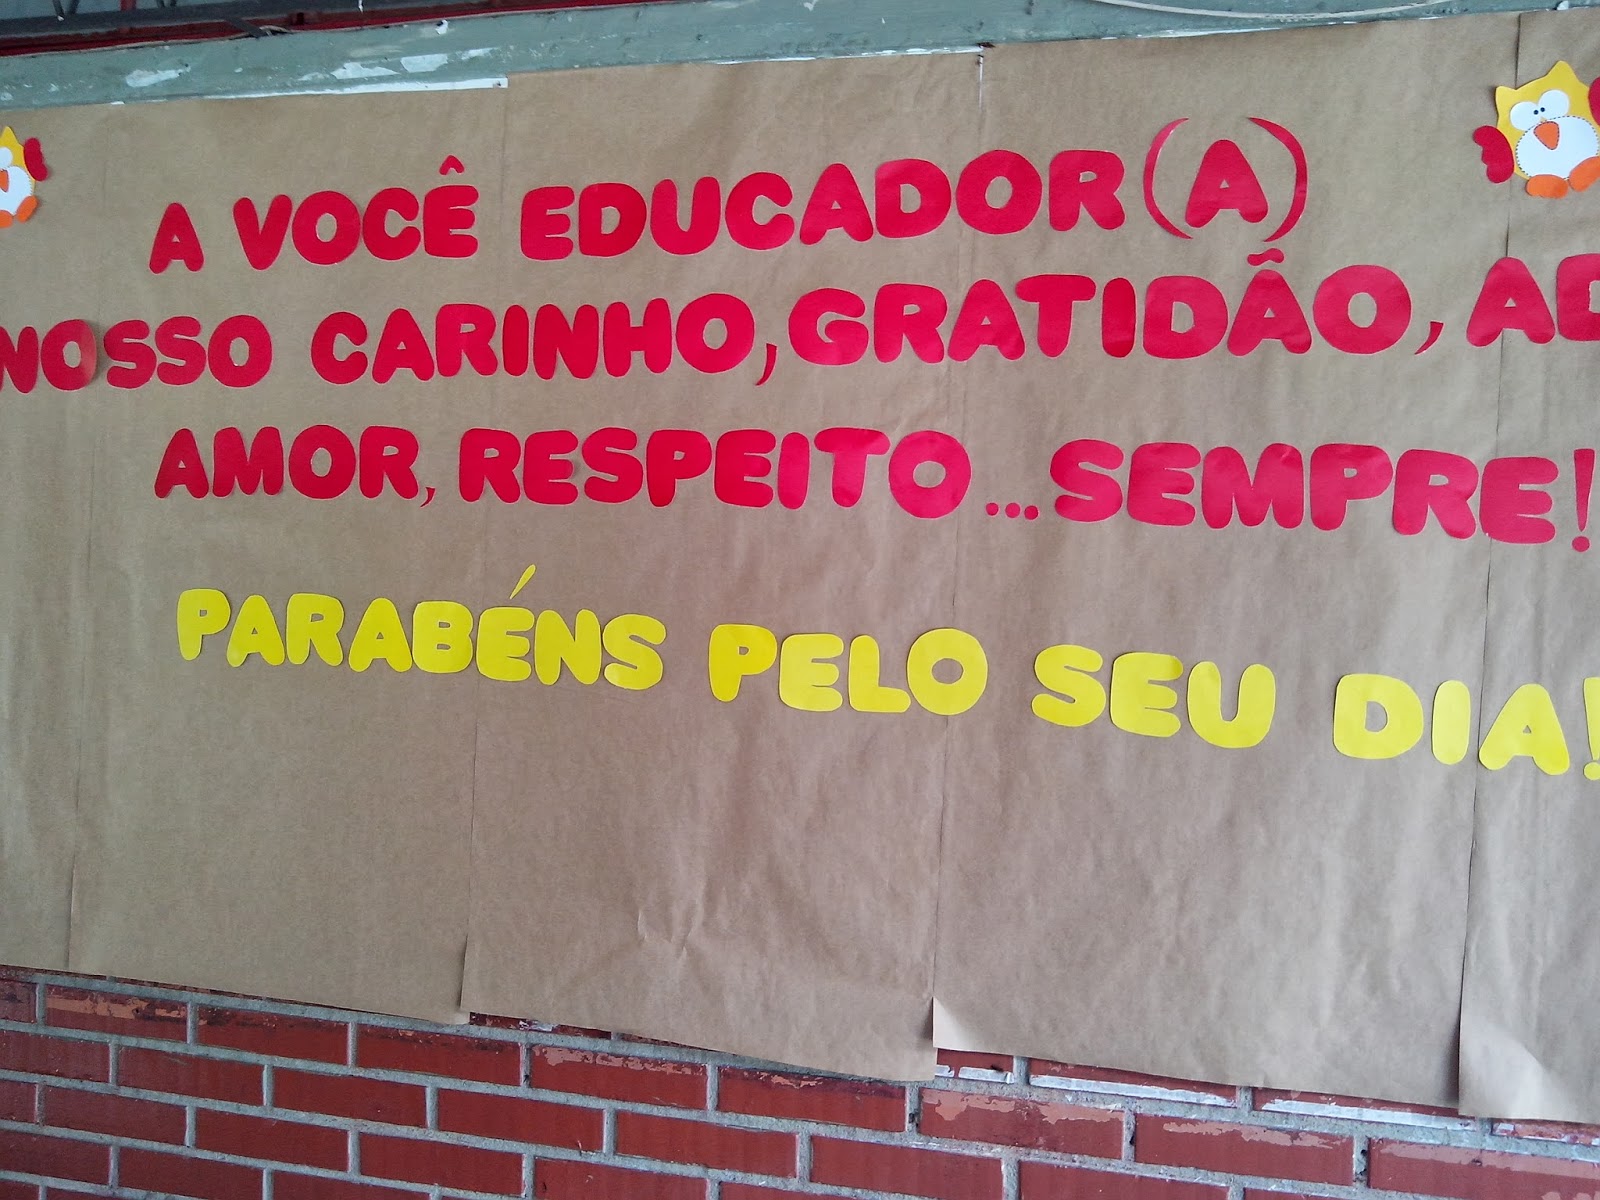 A VOCÊ EDUCADOR(A)
NOSSO CARINHO, GRATIDÃO,
AMOR, RESPEITO...SEMPRE!
PARABÉNS PELO SEU DIA!